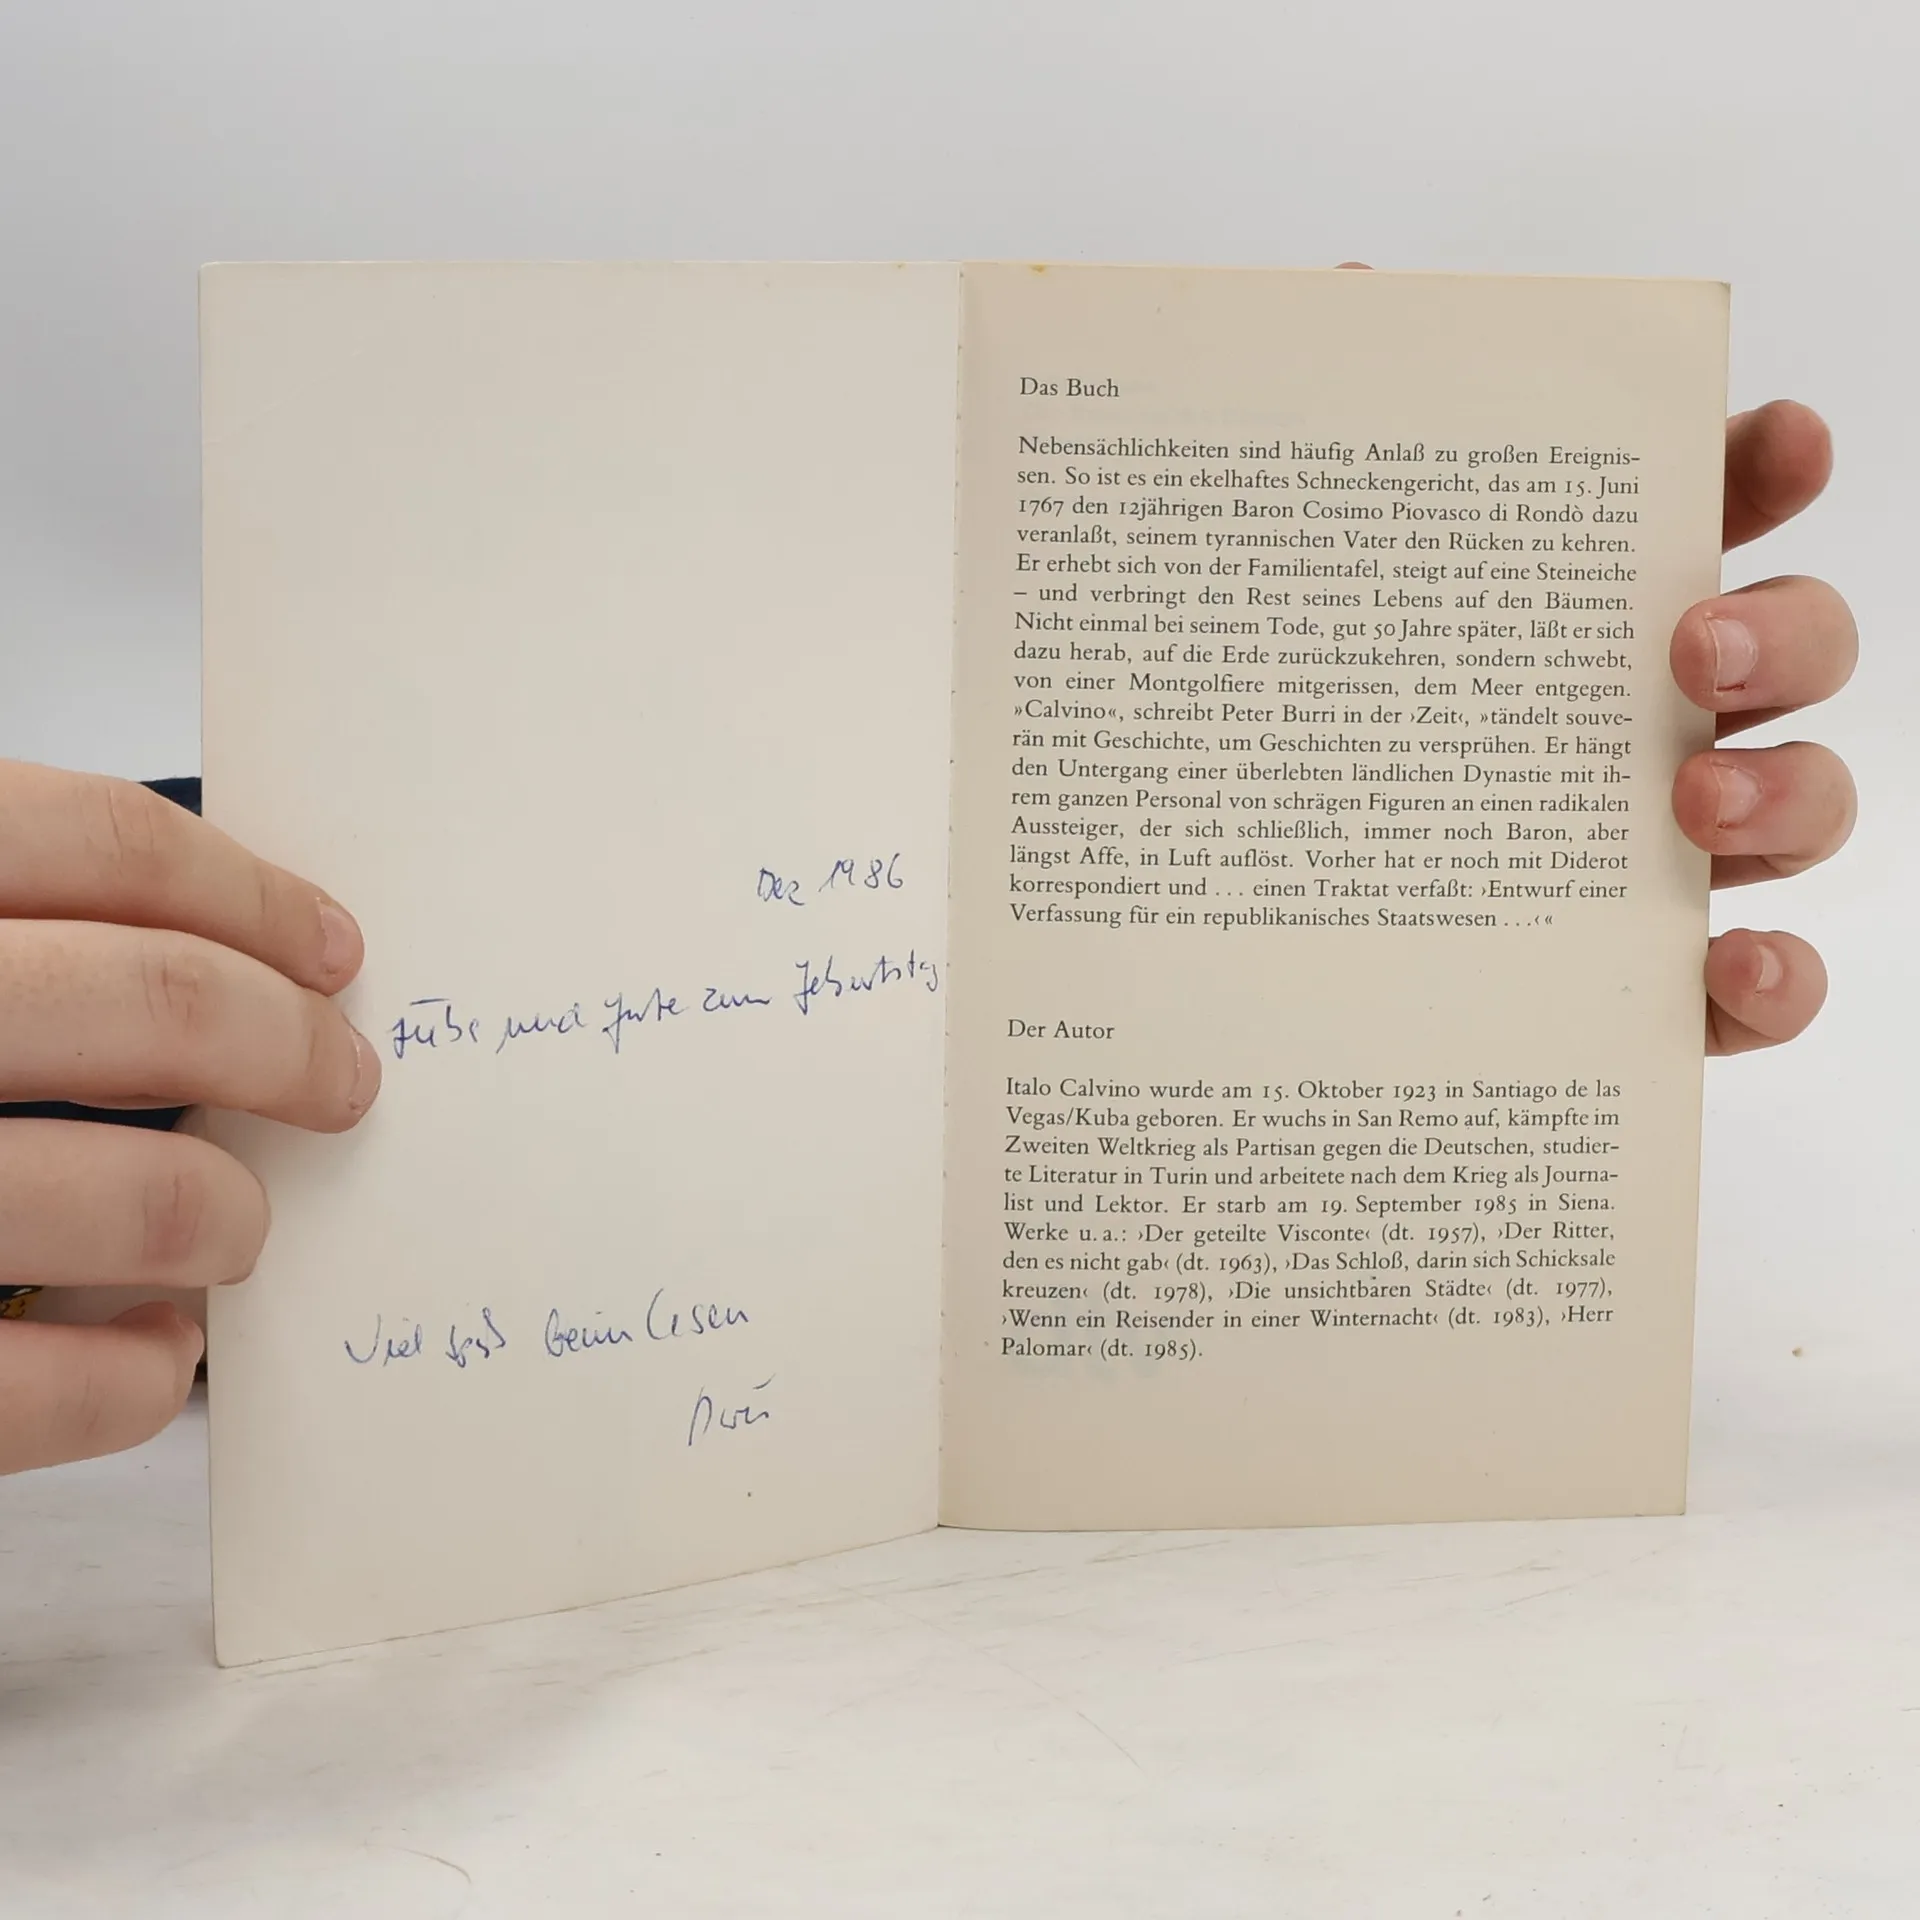 Dez 1986
Liebe und Gute zum Geburtstag
Viel Spaß beim Lesen
Das Buch
Nebensächlichkeiten sind häufig Anlaß zu großen Ereignis-
sen. So ist es ein ekelhaftes Schneckengericht, das am 15. Juni
1767 den 12jährigen Baron Cosimo Piovasco di Rondò dazu
veranlaßt, seinem tyrannischen Vater den Rücken zu kehren.
Er erhebt sich von der Familientafel, steigt auf eine Steineiche
– und verbringt den Rest seines Lebens auf den Bäumen.
Nicht einmal bei seinem Tode, gut 50 Jahre später, läßt er sich
dazu herab, auf die Erde zurückzukehren, sondern schwebt,
von einer Montgolfiere mitgerissen, dem Meer entgegen.
»Calvino«, schreibt Peter Burri in der ›Zeit‹, »tändelt souve-
rän mit Geschichte, um Geschichten zu versprühen. Er hängt
den Untergang einer überlebten ländlichen Dynastie mit ih-
rem ganzen Personal von schrägen Figuren an einen radikalen
Aussteiger, der sich schließlich, immer noch Baron, aber
längst Affe, in Luft auflöst. Vorher hat er noch mit Diderot
korrespondiert und . . . einen Traktat verfaßt: ›Entwurf einer
Verfassung für ein republikanisches Staatswesen . . .‹«
Der Autor
Italo Calvino wurde am 15. Oktober 1923 in Santiago de las
Vegas/Kuba geboren. Er wuchs in San Remo auf, kämpfte im
Zweiten Weltkrieg als Partisan gegen die Deutschen, studier-
te Literatur in Turin und arbeitete nach dem Krieg als Journa-
list und Lektor. Er starb am 19. September 1985 in Siena.
Werke u. a.: ›Der geteilte Visconte‹ (dt. 1957), ›Der Ritter,
den es nicht gab‹ (dt. 1963), ›Das Schloß, darin sich Schicksale
kreuzen‹ (dt. 1978), ›Die unsichtbaren Städte‹ (dt. 1977),
›Wenn ein Reisender in einer Winternacht‹ (dt. 1983), ›Herr
Palomar‹ (dt. 1985).